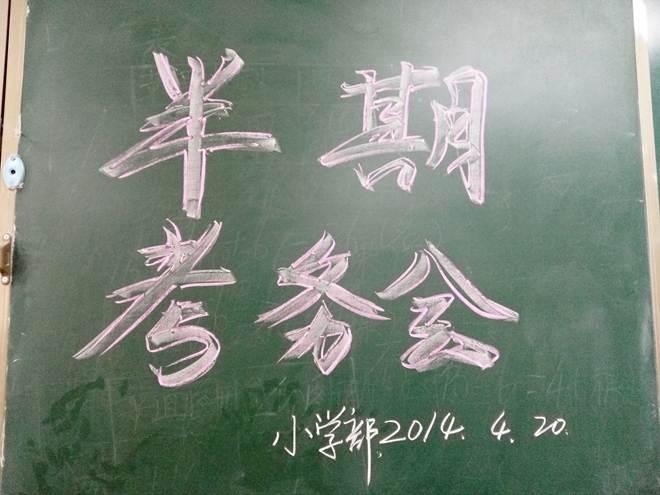 半期
考务会
小学部.2014.4.20.